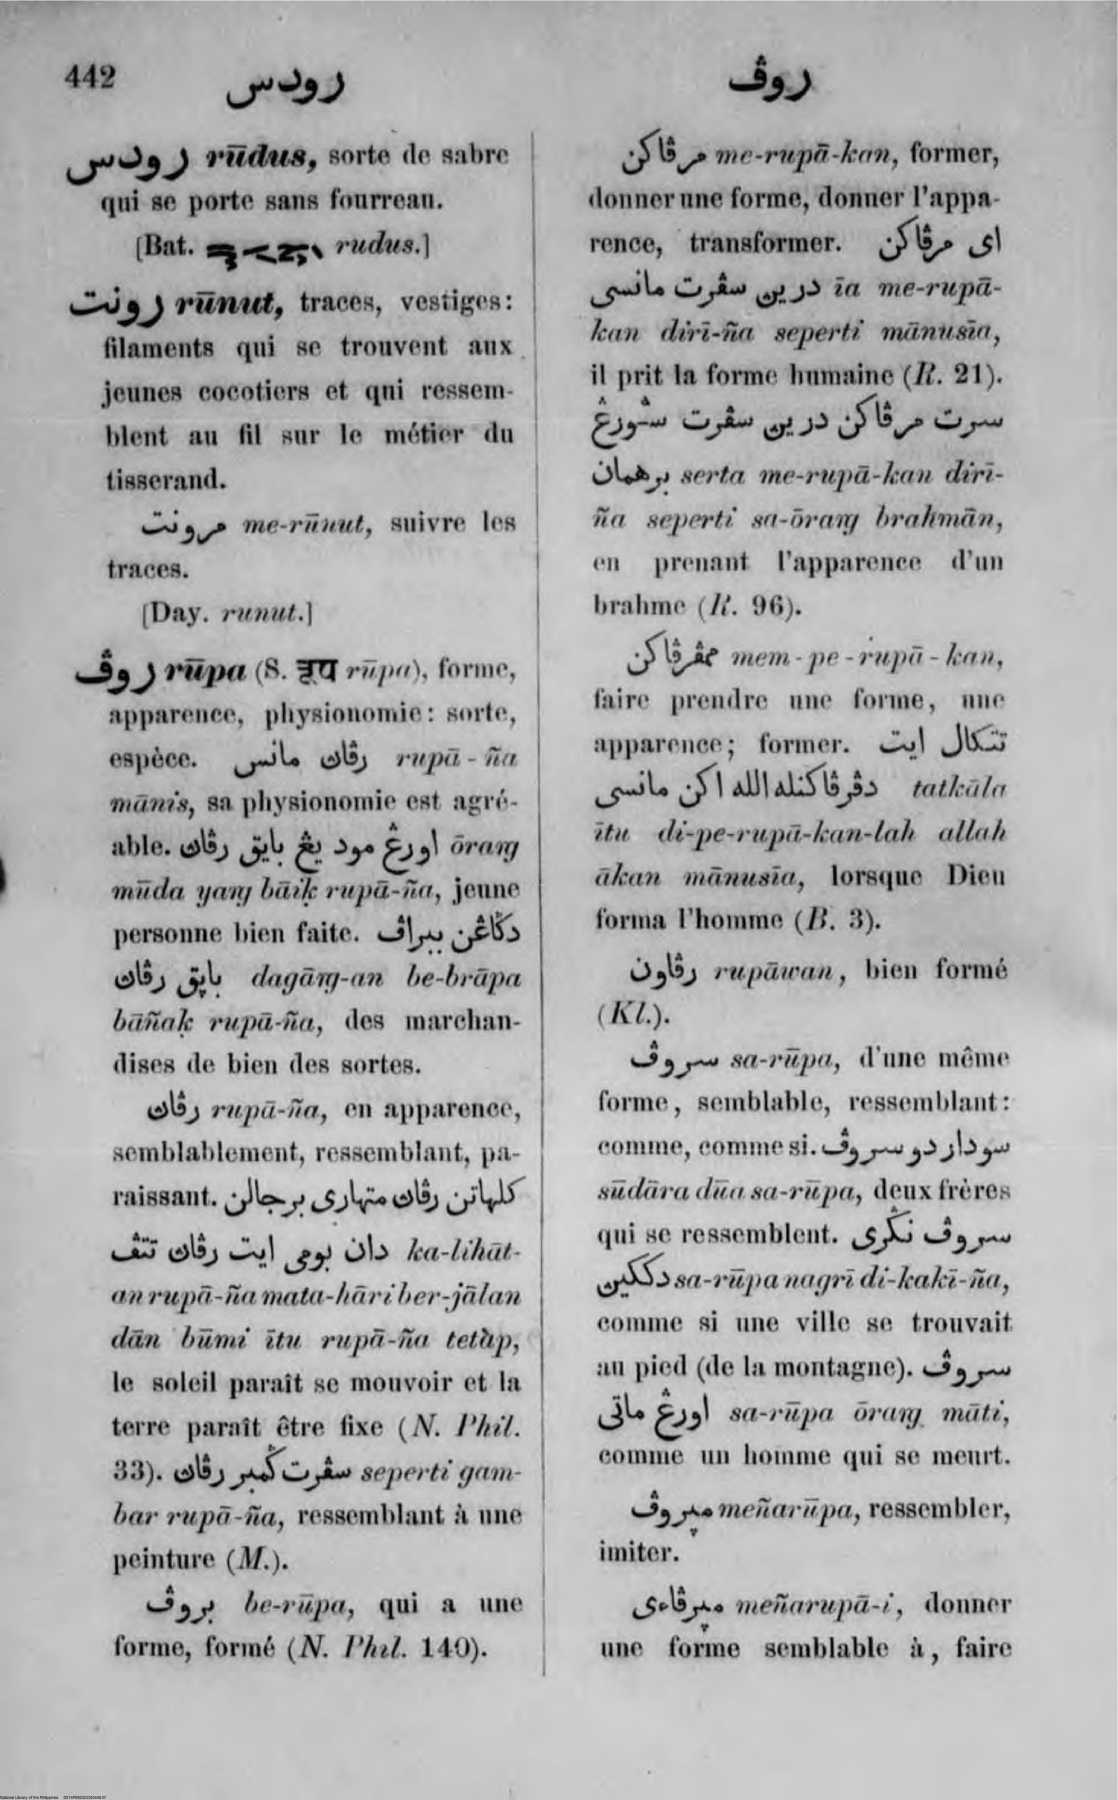 442
رودس
روڤ
رودس rūdus, sorte de sabre
qui se porte sans fourreau.
[Bat. rudus.]
رونت rūnut, traces, vestiges:
filaments qui se trouvent aux
jeunes cocotiers et qui ressem-
blent au fil sur le métier du
tisserand.
مرونت me-rūnut, suivre les
traces.
[Day. runut.]
روڤ rūpa (S. रूप rūpa), forme,
apparence, physionomie: sorte,
espèce. رڤاڽ مانس rupā-ña
mānis, sa physionomie est agré-
able. اورڠ مود يڠ بايق رڤاڽ ōraŋ
mūda yaŋ bāiḳ rupā-ña, jeune
personne bien faite. دݢاڠن ببراڤ
باڽق رڤاڽ dagāŋ-an be-brāpa
bāñaḳ rupā-ña, des marchan-
dises de bien des sortes.
رڤاڽ rupā-ña, en apparence,
semblablement, ressemblant, pa-
raissant. كلهاتن رڤاڽ متهاري برجالن
دان بومي ايت رڤاڽ تتڤ ka-lihāt-
an rupā-ña mata-hāri ber-jālan
dān būmi ītu rupā-ña tetàp,
le soleil paraît se mouvoir et la
terre paraît être fixe (N. Phil.
33). سڤرت ݢمبر رڤاڽ seperti gam-
bar rupā-ña, ressemblant à une
peinture (M.).
بروڤ be-rūpa, qui a une
forme, formé (N. Phil. 140).
مرڤاكن me-rupā-kan, former,
donner une forme, donner l'appa-
rence, transformer. اي مرڤاكن
دريڽ سڤرت مانسي īa me-rupā-
kan dirī-ña seperti mānusīa,
il prit la forme humaine (R. 21).
سرت مرڤاكن دريڽ سڤرت سأورڠ
برهمان serta me-rupā-kan dirī-
ña seperti sa-ōraŋ brahmān,
en prenant l'apparence d'un
brahme (R. 96).
ممڤرڤاكن mem-pe-rupā-kan,
faire prendre une forme, une
apparence; former. تتكال ايت
دڤرڤاكنله الله اكن مانسي tatkāla
ītu di-pe-rupā-kan-lah allah
ākan mānusīa, lorsque Dieu
forma l'homme (B. 3).
رڤاون rupāwan, bien formé
(Kl.).
سروڤ sa-rūpa, d'une même
forme, semblable, ressemblant:
comme, comme si. سودار دو سروڤ
sūdāra dūa sa-rūpa, deux frères
qui se ressemblent. سروڤ نݢري
دككيڽ sa-rūpa nagrī di-kakī-ña,
comme si une ville se trouvait
au pied (de la montagne). سروڤ
اورڠ ماتي sa-rūpa ōraŋ māti,
comme un homme qui se meurt.
مڽروڤ meñarūpa, ressembler,
imiter.
مڽرڤاءي meñarupā-i, donner
une forme semblable à, faire